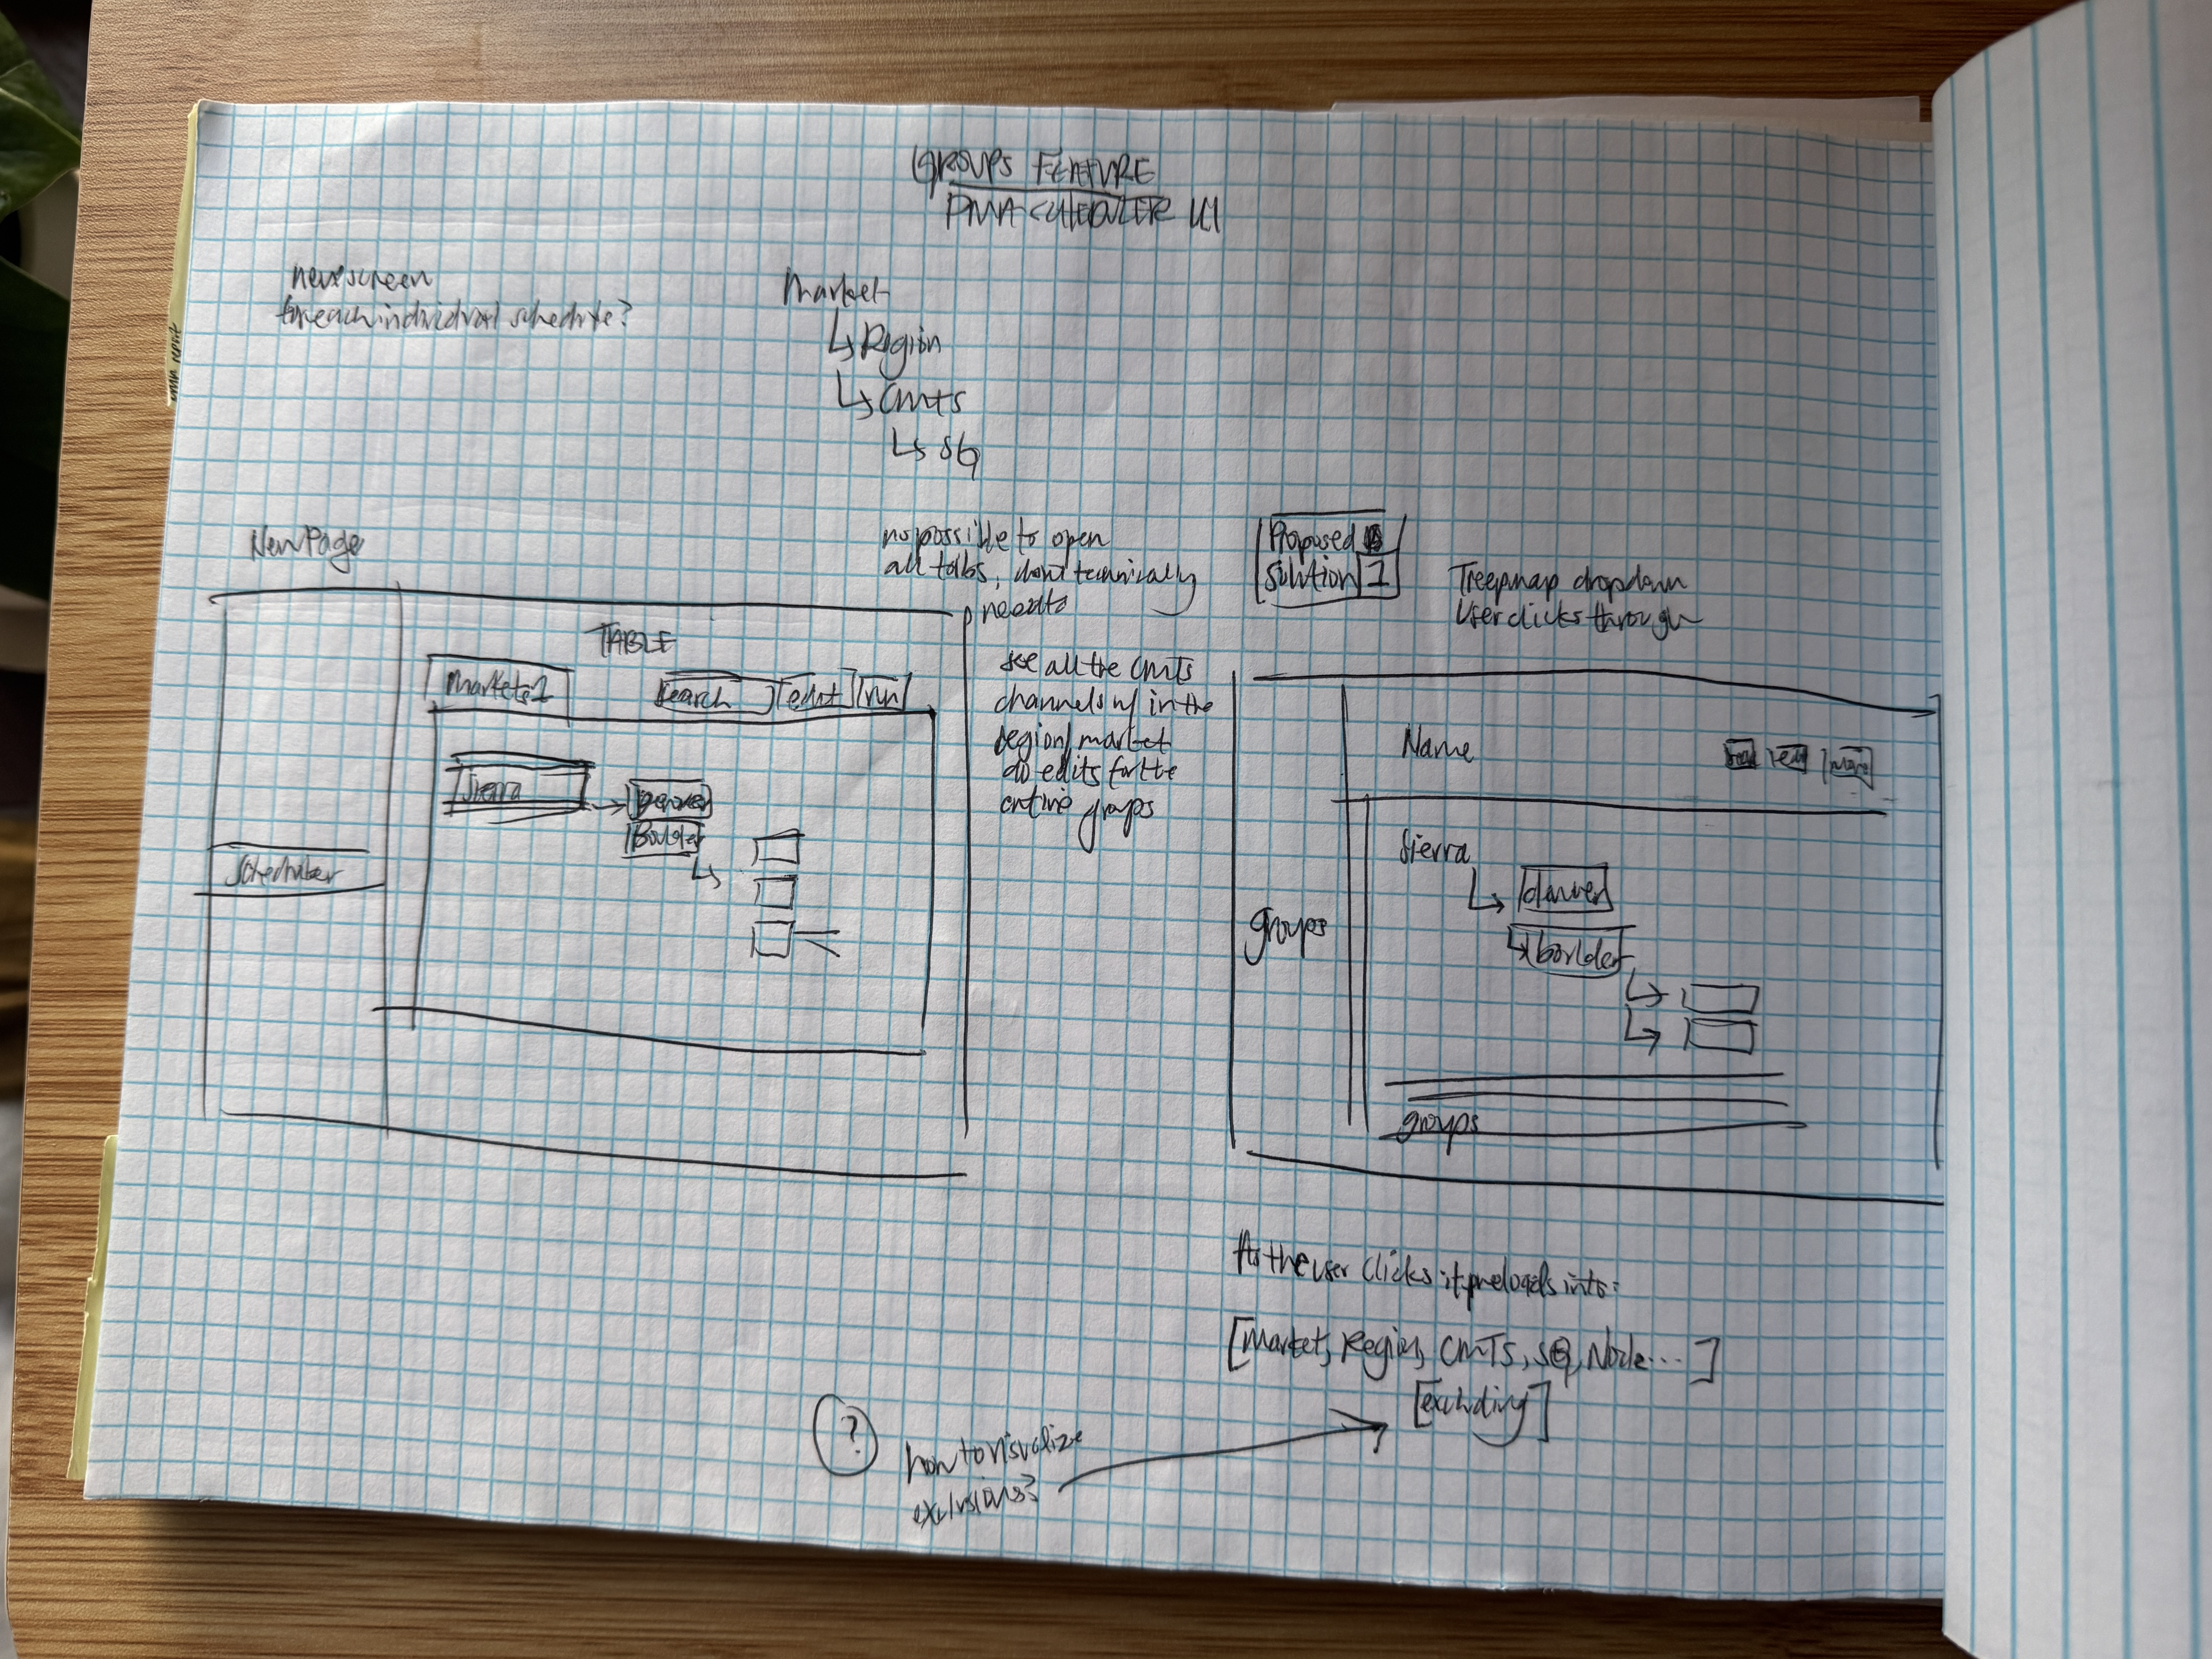 GROUPS FEATURE
PMA SCHEDULER UI
new screen
for each individual schedule?
Market
↳ Region
↳ CMTS
↳ SG
New Page
TABLE
Markets 1
search
edit
run
Sierra
Denver
Boulder
Scheduler
no possible to open
all tabs, dont technically
need to
see all the CMTS
channels w/ in the
region/market
do edits for the
entire groups
Proposed
Solution 1
Treemap dropdown
User clicks through
Name
edit
more
Sierra
denver
boulder
groups
groups
As the user clicks it preloads into:
[Market, Region, CMTS, SG, Node...]
[excluding]
?
how to visualize
exclusions?